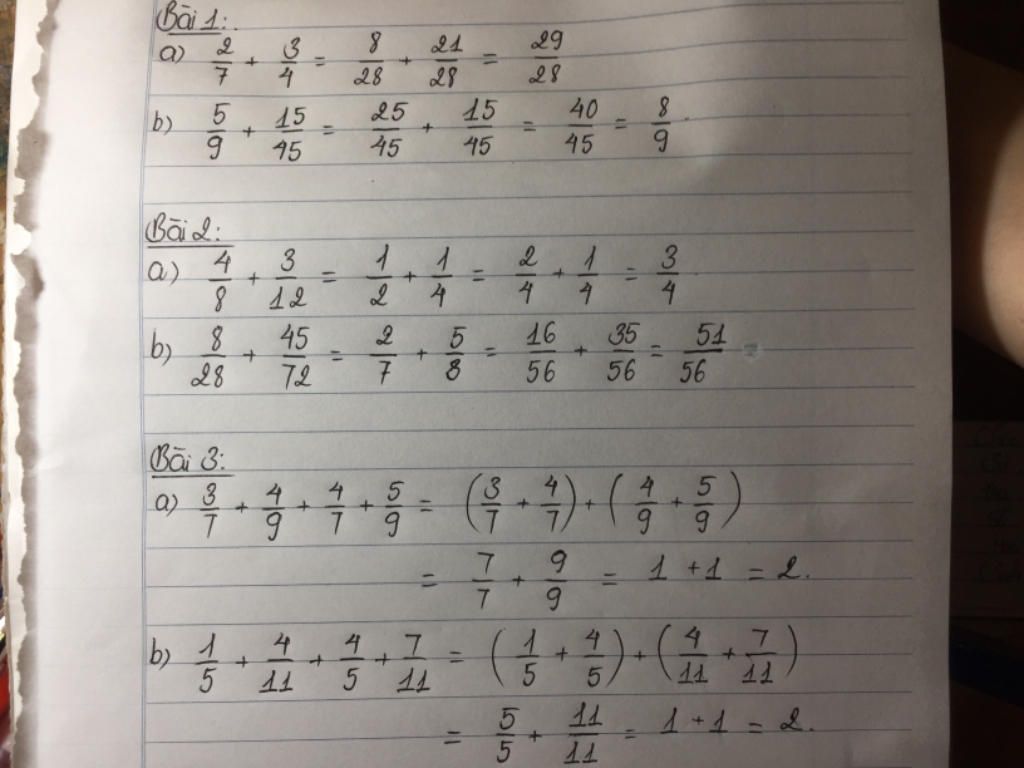 Bài 1:
a) 2/7 + 3/4 = 8/28 + 21/28 = 29/28
b) 5/9 + 15/45 = 25/45 + 15/45 = 40/45 = 8/9.
Bài 2:
a) 4/8 + 3/12 = 1/2 + 1/4 = 2/4 + 1/4 = 3/4.
b) 8/28 + 45/72 = 2/7 + 5/8 = 16/56 + 35/56 = 51/56 =
Bài 3:
a) 3/7 + 4/9 + 4/7 + 5/9 = (3/7 + 4/7) + (4/9 + 5/9)
= 7/7 + 9/9 = 1 + 1 = 2.
b) 1/5 + 4/11 + 4/5 + 7/11 = (1/5 + 4/5) + (4/11 + 7/11)
= 5/5 + 11/11 = 1 + 1 = 2.